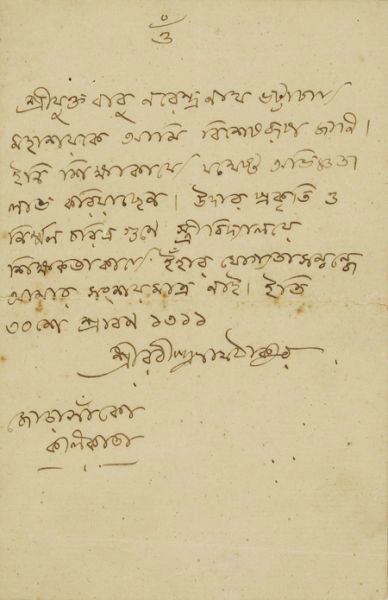 ওঁ
শ্রীযুক্ত বাবু নরেন্দ্র নাথ ভট্টাচার্য্য
মহাশয়কে আমি বিশেষরূপ জানি।
ইনি শিক্ষাকার্য্যে যথেষ্ট অভিজ্ঞতা
লাভ করিয়াছেন। উদার প্রকৃতি ও
নির্ম্মল চরিত্র গুণে স্ত্রীবিদ্যালয়ে
শিক্ষকতাকার্য্যে ইঁহার যোগ্যতাসম্বন্ধে
আমার সংশয়মাত্র নাই। ইতি
৩০শে শ্রাবণ ১৩১১
শ্রীরবীন্দ্রনাথ ঠাকুর
জোড়াসাঁকো
কলিকাতা